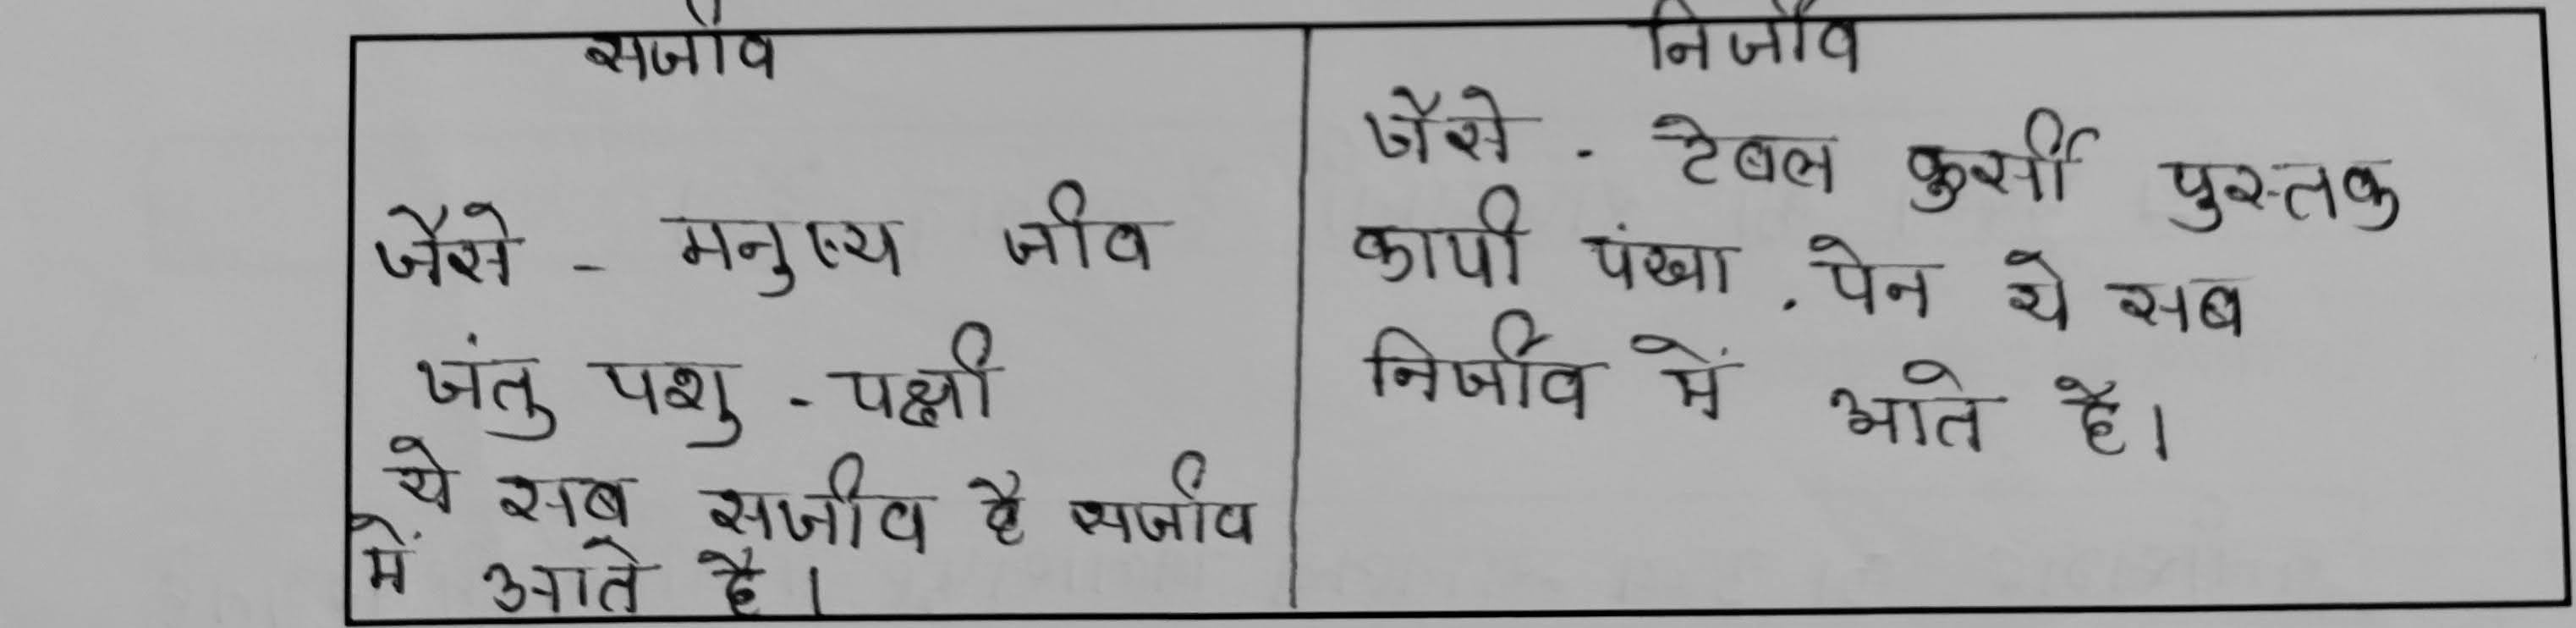 सजीव
जैसे - मनुष्य जीव
जंतु पशु - पक्षी
ये सब सजीव है सजीव
में आते है।
निर्जीव
जैसे - टेबल कुर्सी पुस्तक
कापी पंखा . पेन ये सब
निर्जीव में आते है।